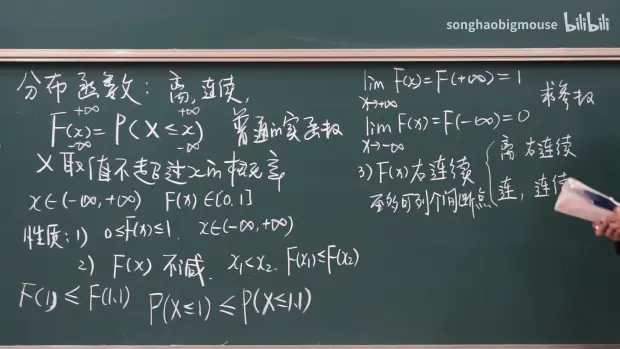 songhaobigmouse bilibili
分布函数: 离, 连续,
F(x) = P(X ≤ x) 普通的实函数
+∞ +∞
-∞ -∞
X取值不超过x的概率
x∈(-∞,+∞) F(x)∈[0,1]
性质: 1) 0≤F(x)≤1. x∈(-∞,+∞)
2) F(x) 不减. x₁<x₂. F(x₁)≤F(x₂)
F(1) ≤ F(1.1) P(X≤1) ≤ P(X≤1.1)
lim F(x) = F(+∞) = 1
x→+∞
lim F(x) = F(-∞) = 0 求参数
x→-∞
3) F(x)右连续 { 离 右连续
至多可列个间断点 连, 连续